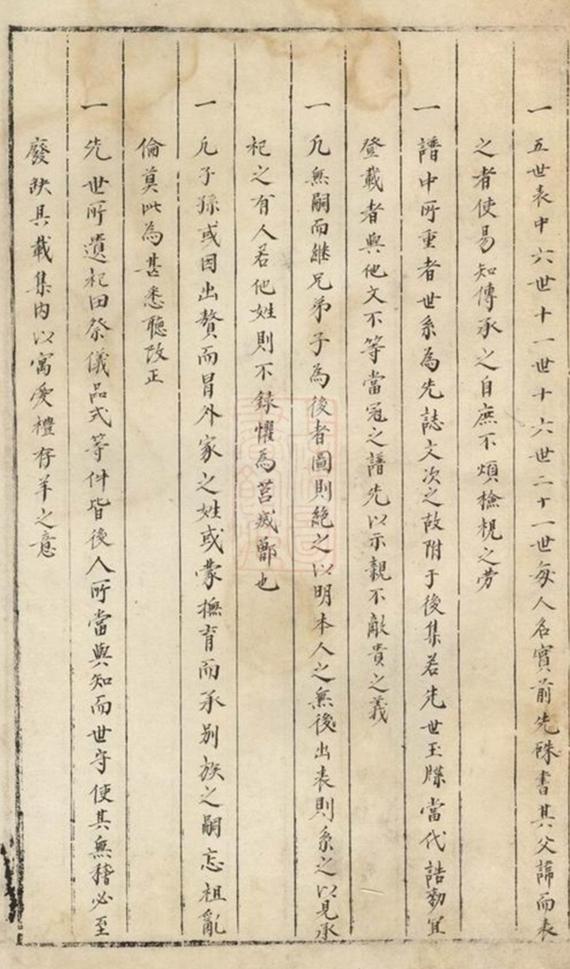 一五世表中六世十一世十六世二十一世每人名實前先硃書其父諱而表
之者使易知傳承之自庶不煩檢覌之劳
一譜中所重者世系為先誌文次之故附于後集若先世玉牒當代誥勅宜
登載者與他文不等當冠之譜先以示親不敵貴之義
一凡無嗣而継兄弟子為後者圖則絶之以明本人之無後出表則系之以見承
祀之有人若他姓則不録懼為莒烕鄫也
一凡子孫或因出贅而冒外家之姓或蒙撫育而承别族之嗣忘祖亂
倫莫此為甚悉聽改正
一先世所遺祀田祭儀品式等件皆後人所當與知而世守使其無稽必至
廢缺具載集内以寓愛禮存羊之意